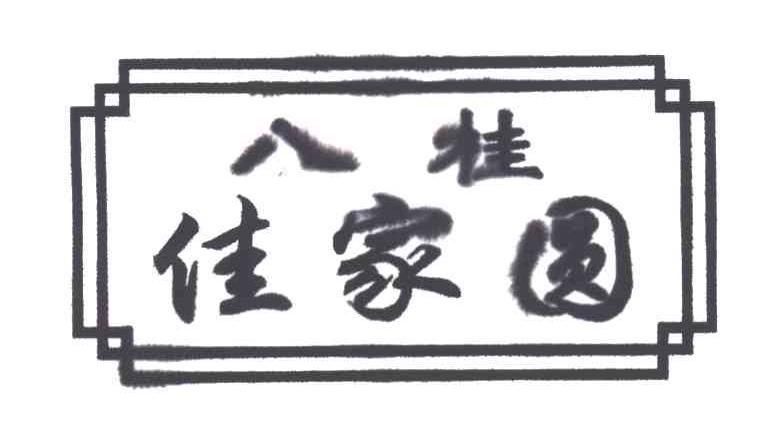 八桂
佳家圆